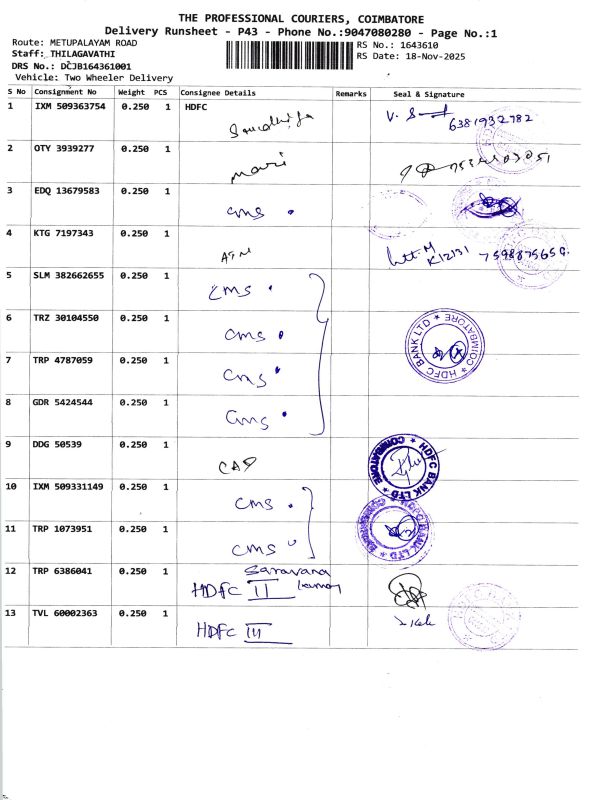 THE PROFESSIONAL COURIERS, COIMBATORE
Delivery Runsheet - P43 - Phone No.:9047080280 - Page No.:1
Route: METUPALAYAM ROAD
Staff: THILAGAVATHI
DRS No.: DCJB164361001
Vehicle: Two Wheeler Delivery
RS No.: 1643610
RS Date: 18-Nov-2025
S No Consignment No Weight PCS Consignee Details Remarks Seal & Signature
1 IXM 509363754 0.250 1 HDFC 6381932782
2 OTY 3939277 0.250 1 mari
3 EDQ 13679583 0.250 1 cms
4 KTG 7197343 0.250 1 ATM
5 SLM 382662655 0.250 1 cms
6 TRZ 30104550 0.250 1 cms
HDFC BANK LTD * COIMBATORE *
7 TRP 4787059 0.250 1 cms
8 GDR 5424544 0.250 1 cms
9 DDG 50539 0.250 1
HDFC BANK LTD * COIMBATORE *
10 IXM 509331149 0.250 1 cms
11 TRP 1073951 0.250 1 cms
12 TRP 6386041 0.250 1 Saravana
HDFC II
13 TVL 60002363 0.250 1 HDFC III